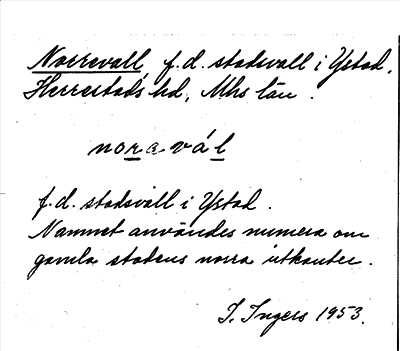 Norrevall f.d. stadsvall i Ystad,
Herrestads hd, Mhs län.
noravál
f.d. stadsvall i Ystad.
Namnet användes numera om
gamla stadens norra utkanter.
I. Ingers 1953.